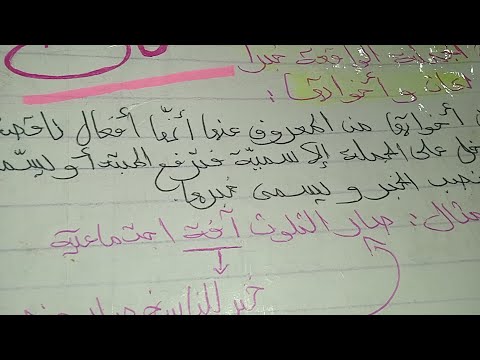 الجملة الواقعة خبرا
كان و أخواتها :
أخواتها من المعروف عنها أنّها أفعال ناقصة
على الجملة الإسمية فترفع المبتدأ و يسمى
الخبر و يسمى خبرها.
مثال: صار التلوث آفة اجتماعية
خبر الناسخ صار